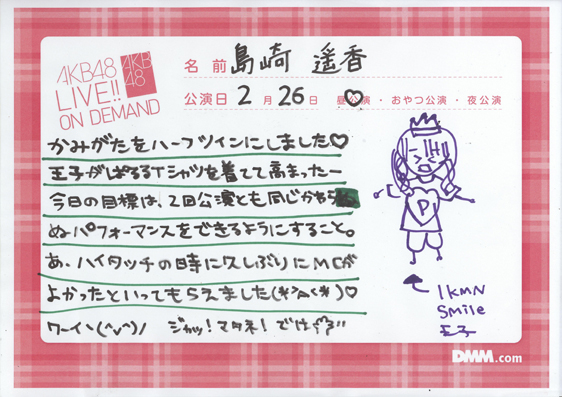 AKB48
LIVE!!
ON DEMAND
AKB
48
名前 島崎 遥香
公演日 2月26日 ♡昼公演・おやつ公演・夜公演
かみがたをハーフツインにしました♡
王子がぱるるTシャツを着てて高まったー
今日の目標は、2回公演とも同じかわら
ぬパフォーマンスをできるようにすること。
あ、ハイタッチの時に久しぶりにMCが
よかったといってもらえました(*>∧<*)♡
ワーイ\(^v^)/ ジャッ!マタネ!では
P
1KMN
smile
王子
DMM.com